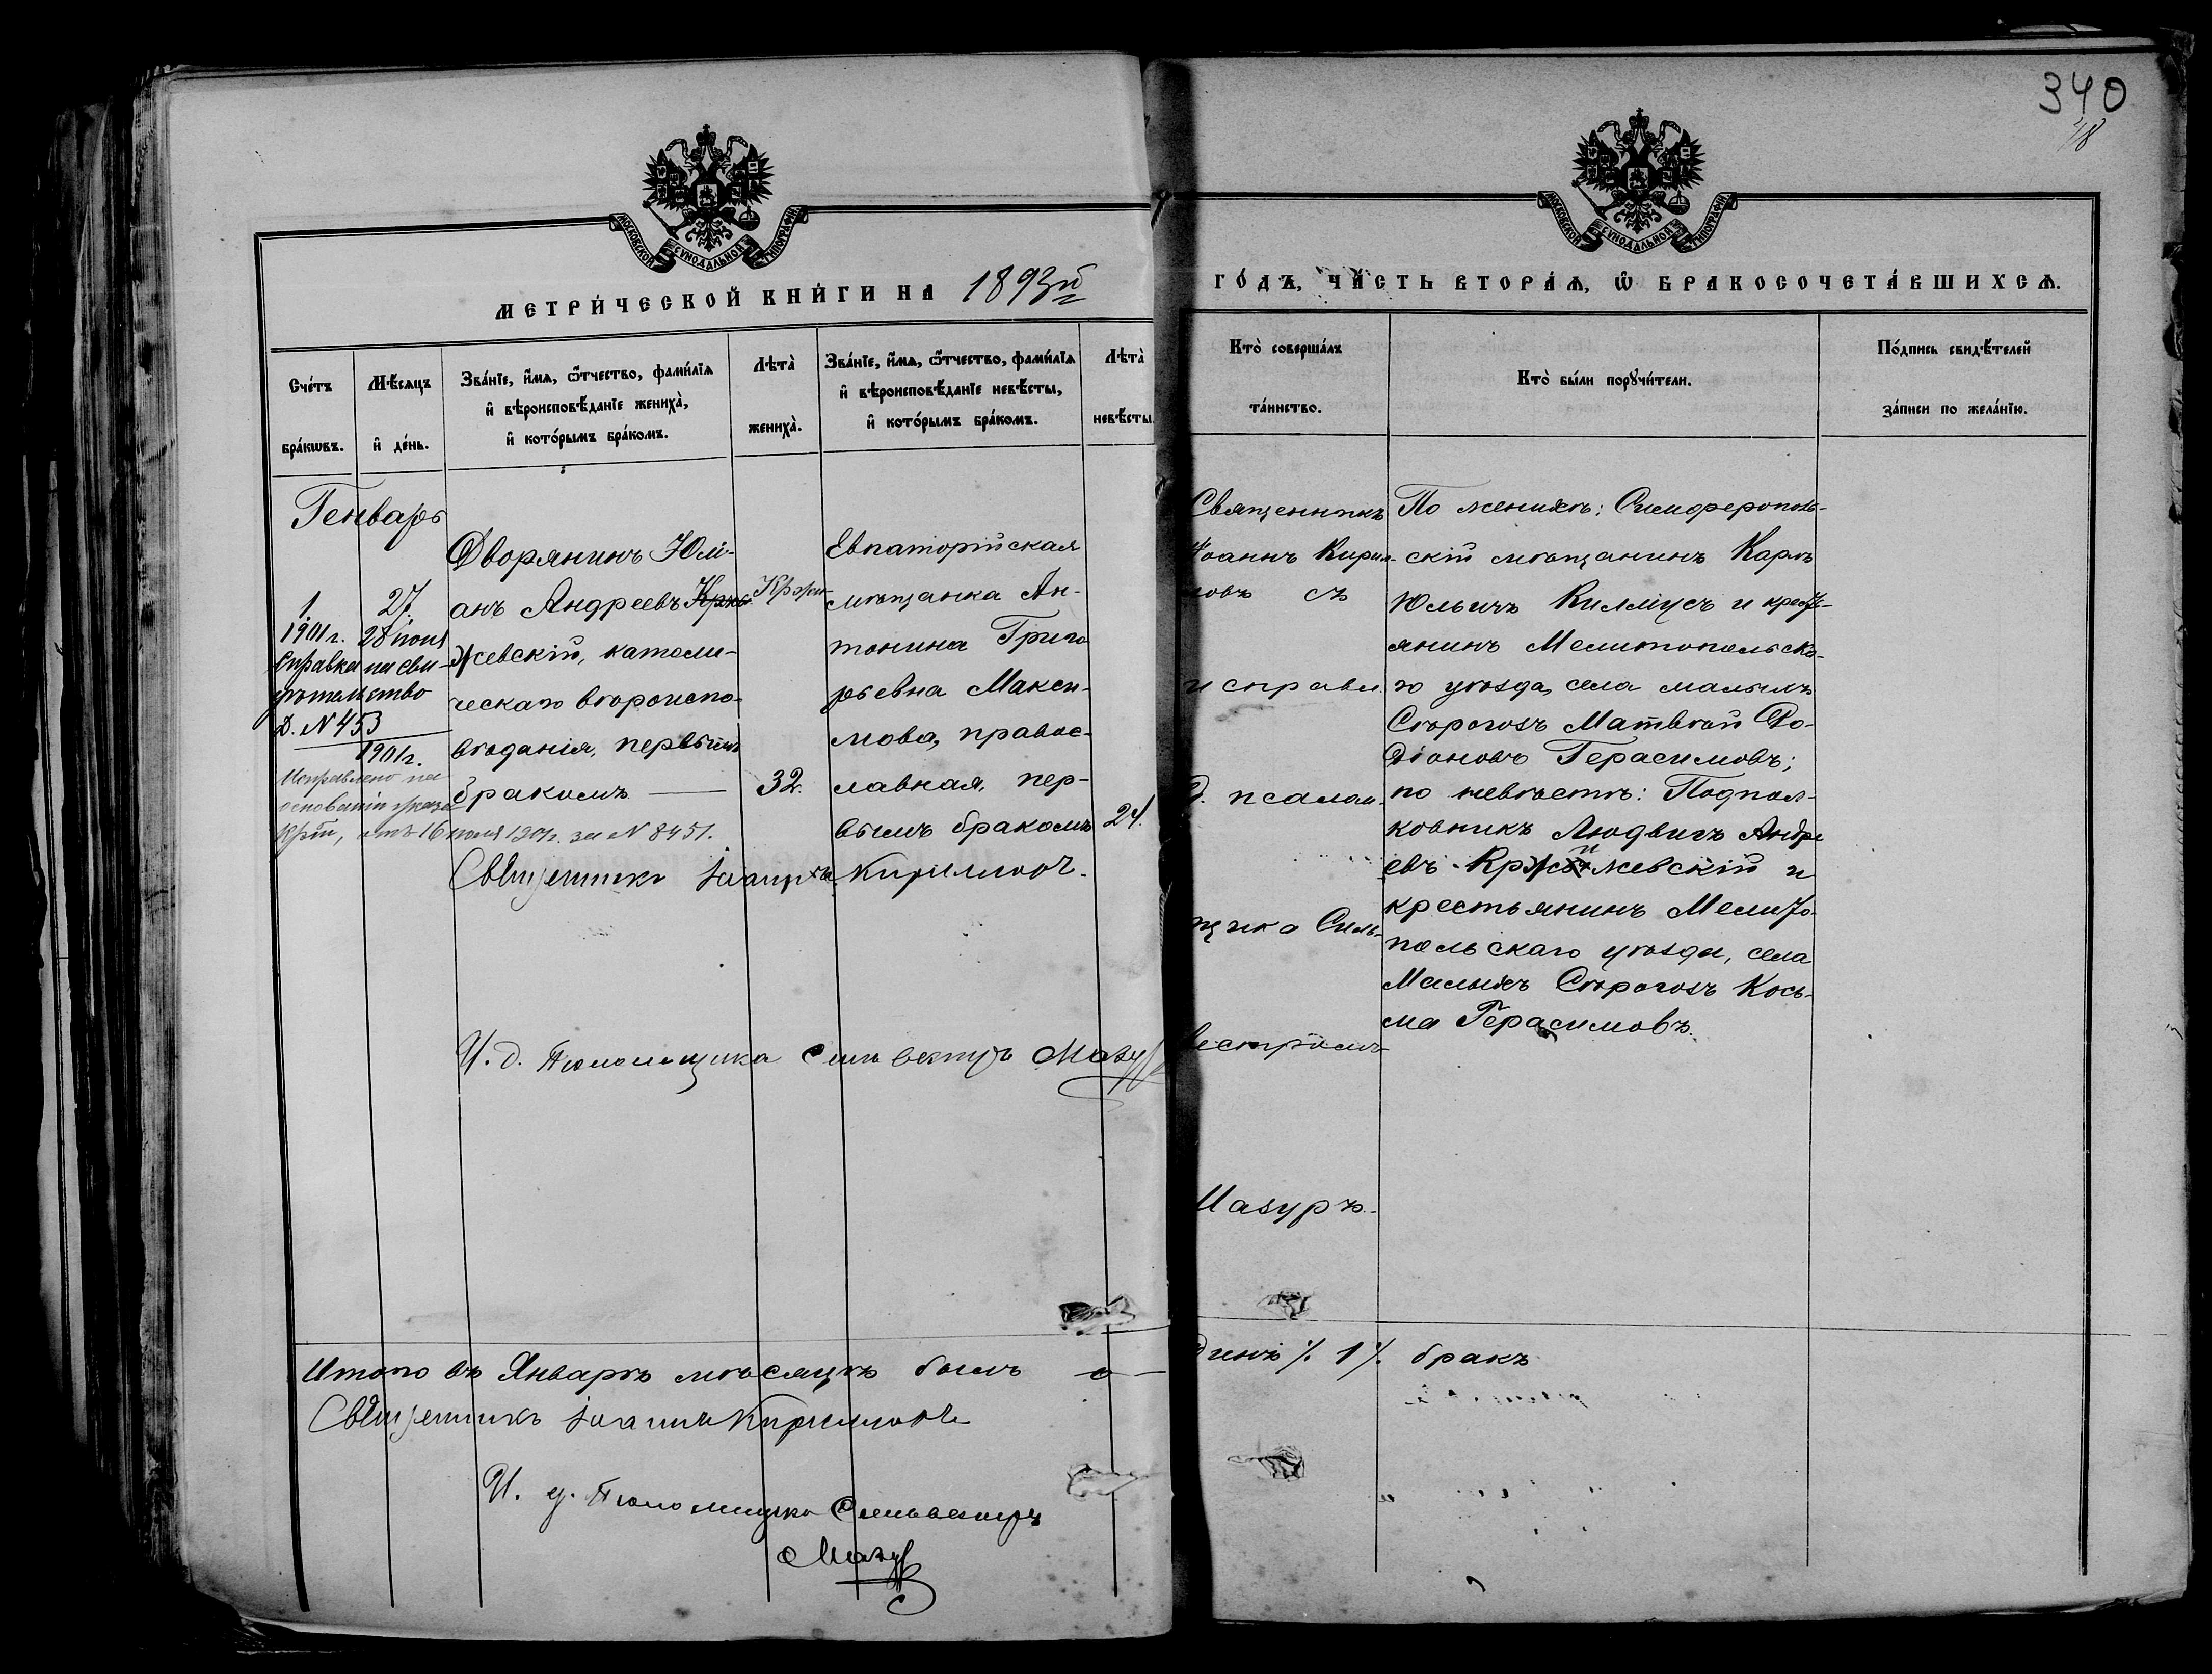 340
48
МОСКОВСКОЙ СѴНОДАЛЬНОЙ ТИПОГРАФІИ
МОСКОВСКОЙ СѴНОДАЛЬНОЙ ТИПОГРАФІИ
МЕТРИ́ЧЕСКОЙ КНИ́ГИ НА 1893й
ГО́ДЪ, ЧА́СТЬ ВТОРА́Ѧ, Ѽ БРАКОСОЧЕТА́ВШИХСѦ.
Сче́тъ бра́кѡвъ.
Мѣ́сяцъ и҆ де́нь.
Зва́нїе, и҆́мѧ, ѻ҆́тчество, фами́лїѧ
и҆ вѣроисповѣ́данїе жениха̀,
и҆ кото́рымъ бра́комъ.
Лѣта̀ жениха̀.
Зва́нїе, и҆́мѧ, ѻ҆́тчество, фами́лїѧ
и҆ вѣроисповѣ́данїе невѣ́сты,
и҆ кото́рымъ бра́комъ.
Лѣта̀ невѣ́сты
Кто̀ соверша́лъ та́инство.
Кто̀ бы́ли порꙋчи́тели.
По́дпись свидѣ́телей за́писи по жела́нїю.
Генварь
1.
27.
1901 г. 28 іюня
Справка на сви-
дѣтельство
Д. № 453
1901 г.
Исправлено на
основаніи указа
отъ 16 іюля 1901 г. за № 8451.
Дворянинъ Юлі-
анъ Андреевъ
жевскій, католи-
ческаго вѣроиспо-
вѣданія, первымъ
бракомъ
32.
Евпаторійская
мѣщанка Ан-
тонина Григо
рьевна Макси-
мова, правос-
лавная, пер-
вымъ бракомъ
24.
Священникъ Іоаннъ Кирилловъ.
И. д. Псаломщика Сильвестръ Мазур
Священникъ
Іоаннъ Кирил-
ловъ съ
и справл.
д. псалом-
щика Силь-
вестромъ
Мазуръ.
По женихѣ: Симферополь-
скій мѣщанинъ Карлъ
Юльичъ Киллiусъ и кресть-
янинъ Мелитопольска-
го уѣзда, села малыхъ
Сѣрогозъ Матвѣй Ро-
діоновъ Герасимовъ;
по невѣстѣ: Подпол-
ковникъ Людвигъ Андре
евъ Кржижевскій и
крестьянинъ Мелито-
польскаго уѣзда, села
Малыхъ Сѣрогозъ Кось-
ма Герасимовъ.
Итого въ Январѣ мѣсяцѣ былъ о-
динъ /. 1 /. бракъ
Священникъ Іоаннъ Кирилловъ
И. д. Псаломщика Сильвестръ
Мазур